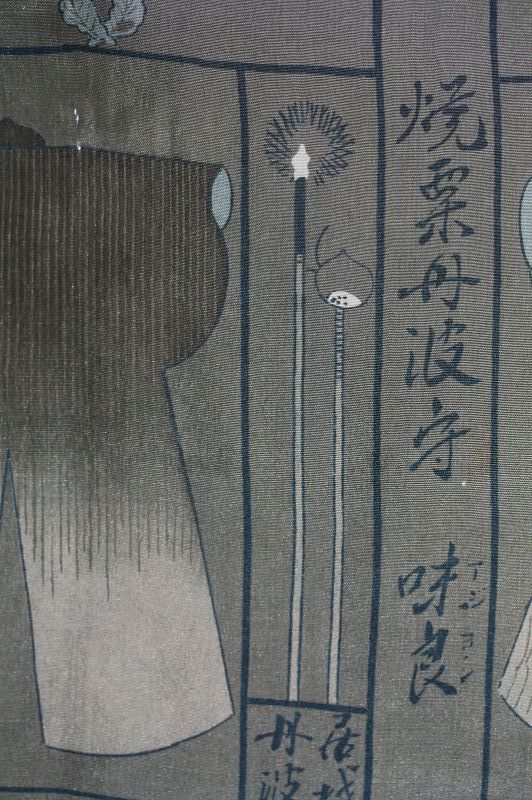 焼栗丹波守 味良
アジ ヨシ
居城
丹波